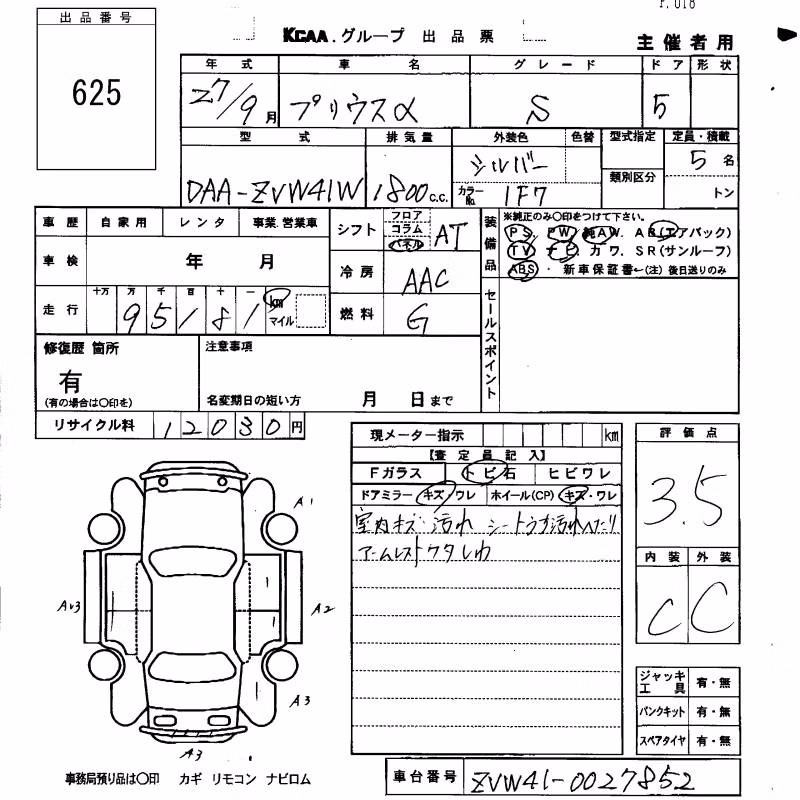 出品番号
625
F. 018
KCAA.グループ 出品票
主催者用
年式 車名 グレード ドア 形状
27/9月 プリウスα S 5
型式 排気量 外装色 色替 型式指定 定員・積載
DAA-ZVW41W 1800c.c. シルバー 5名
カラーNo. 1F7 類別区分 トン
車歴 自家用 レンタ 事業.営業車
シフト フロア コラム パネル AT
装備品 ※純正のみ〇印をつけて下さい。
PS. PW. 純AW. AB(エアバック)
TV. ナビ. カワ. SR(サンルーフ)
ABS・ 新車保証書←(注)後日送りのみ
車検 年 月
冷房 AAC
走行 十万 万 千 百 十 一 km マイル
95181
燃料 G
セールスポイント
修復歴 箇所
有
(有の場合は〇印を)
注意事項
名変期日の短い方 月 日まで
リサイクル料 12030円
現メーター指示 km
【査定員記入】
Fガラス トビ石 ヒビワレ
ドアミラー キズ・ワレ ホイール(CP) キズ・ワレ
室内キズ 汚れ シートうす汚れへたり
アームレストワタしわ
評価点
3.5
内装 外装
C C
A1
Av3
A2
A3
A3
ジャッキ工具 有・無
パンクキット 有・無
スペアタイヤ 有・無
事務局預り品は〇印 カギ リモコン ナビロム
車台番号 ZVW41-0027852